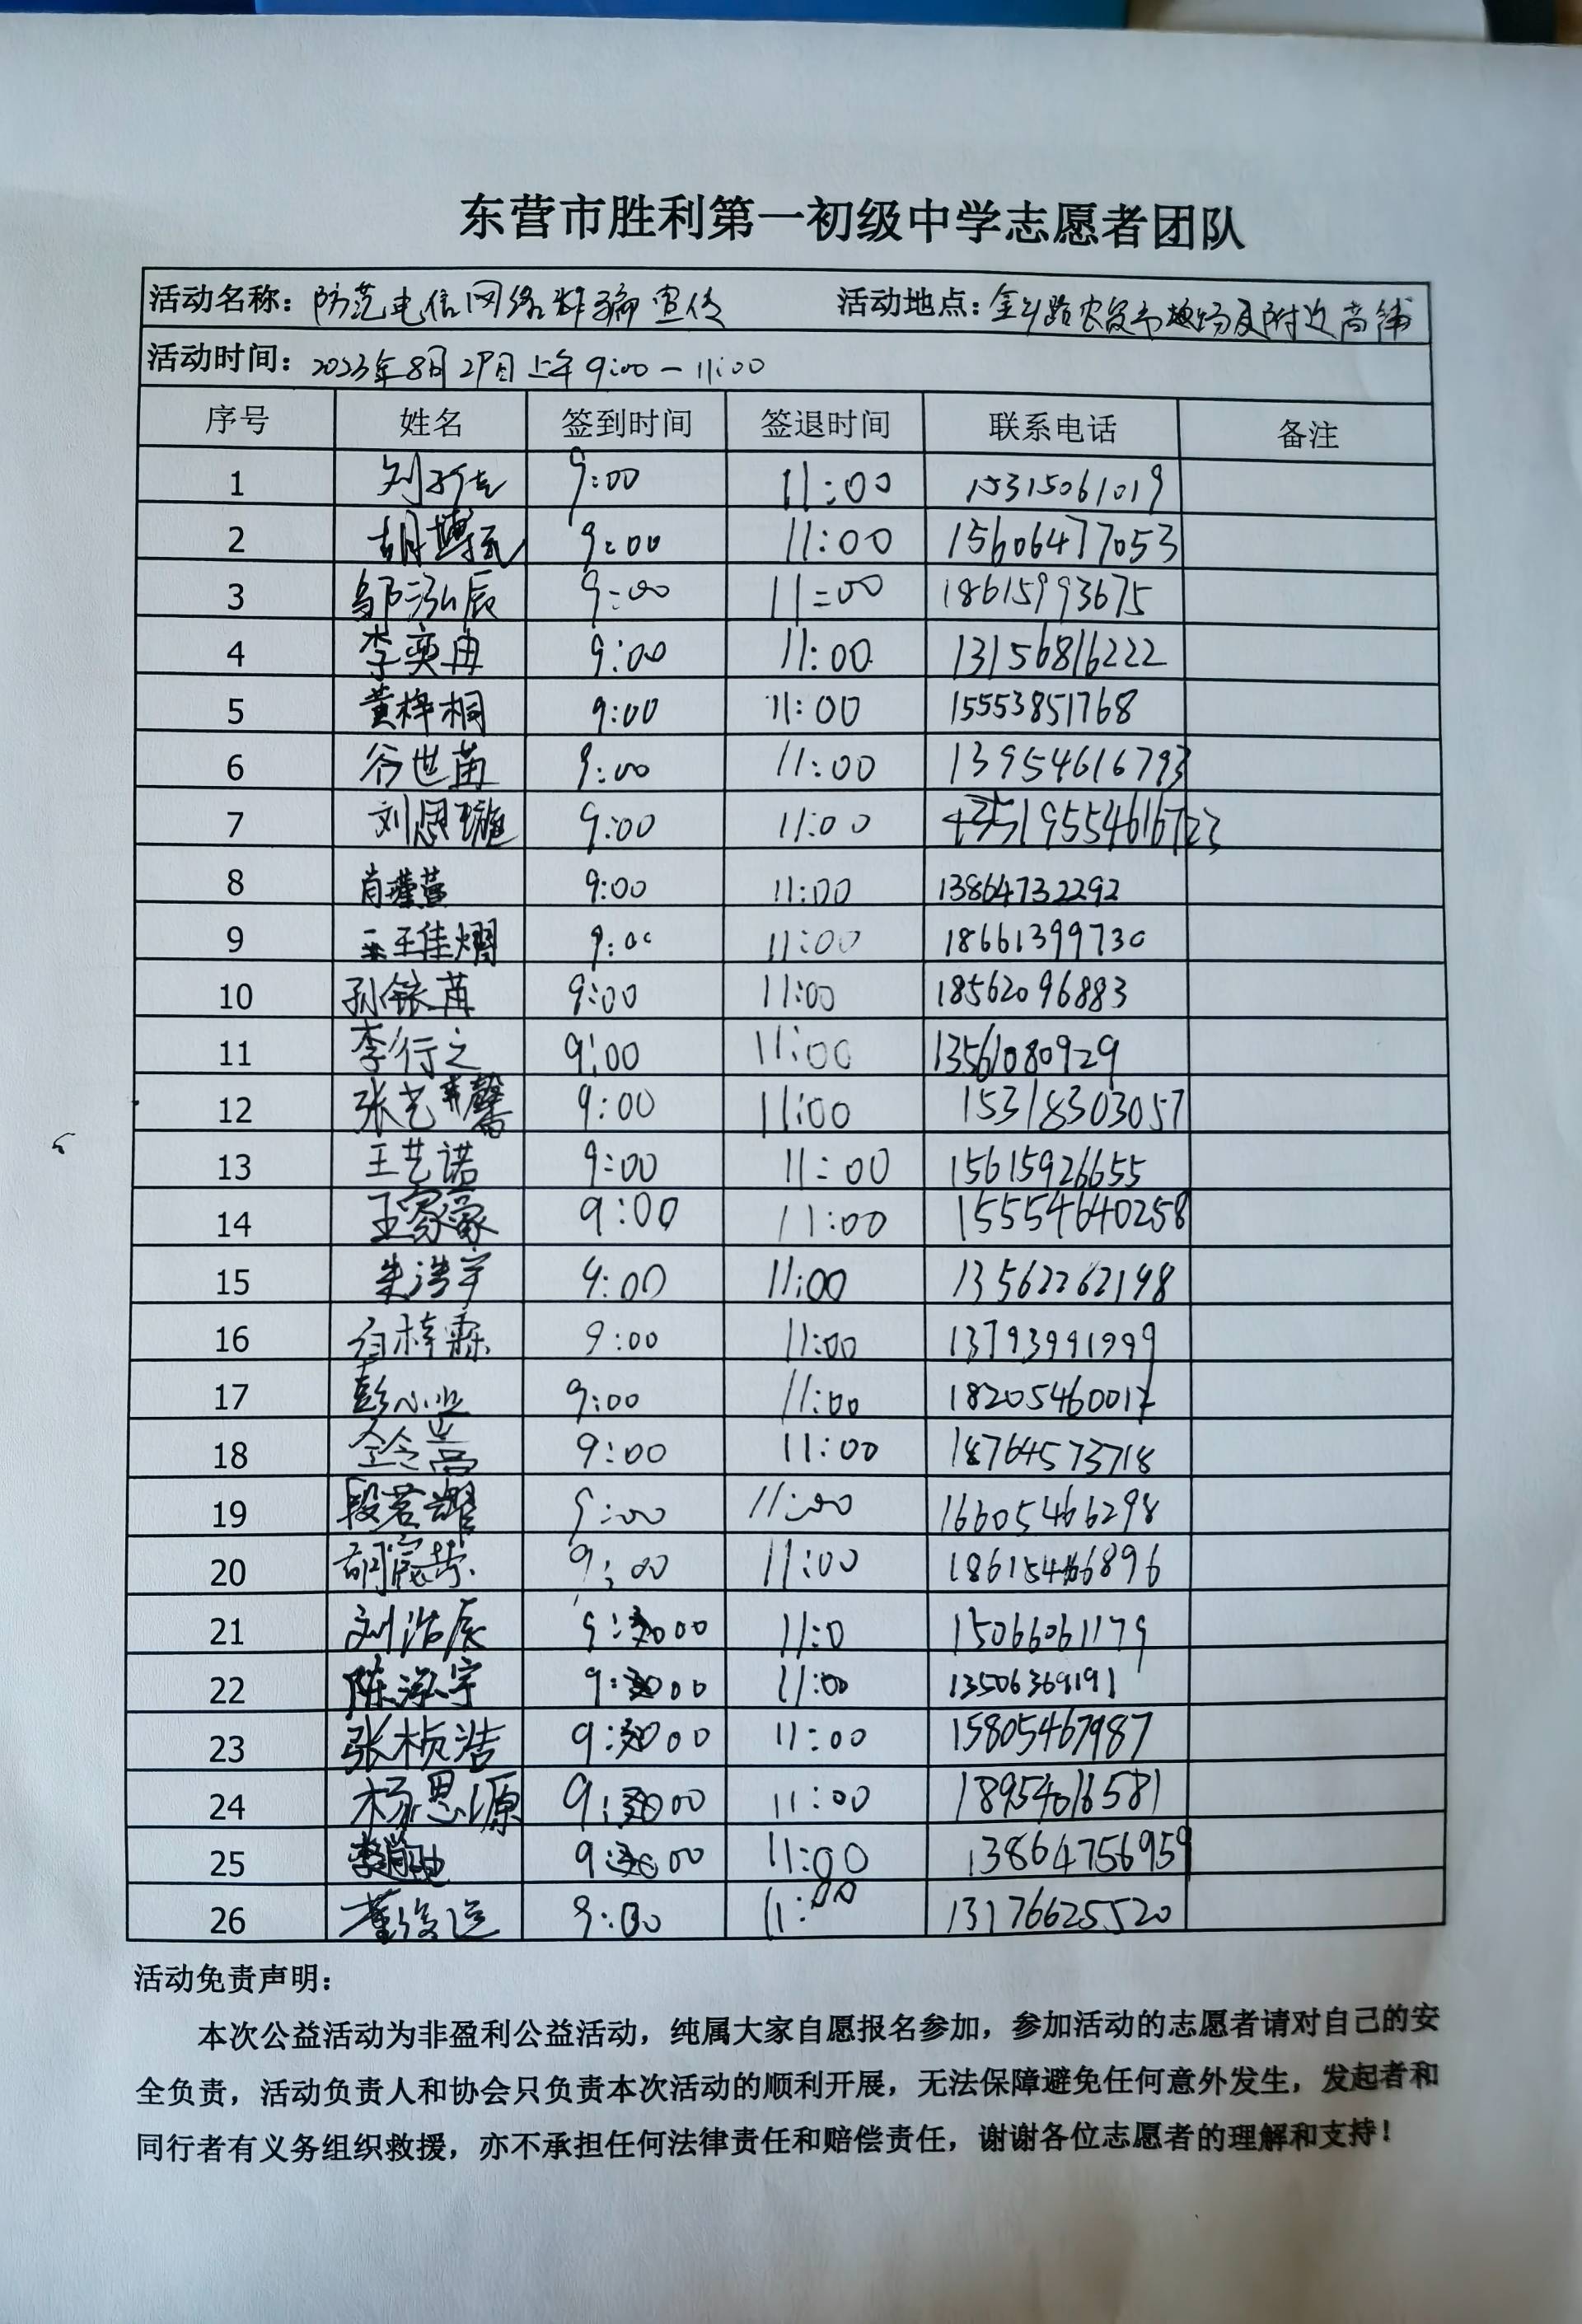 东营市胜利第一初级中学志愿者团队
活动名称：防范电信网络诈骗宣传 活动地点：金斗路农贸市场及附近商铺
活动时间：2023年8月29日上午9:00-11:00
序号 姓名 签到时间 签退时间 联系电话 备注
1 刘 9:00 11:00 15315061019
2 胡博 9:00 11:00 15606477053
3 邬泓辰 9:00 11:00 18615993675
4 李奕冉 9:00 11:00 13156816222
5 黄梓桐 9:00 11:00 15553851768
6 谷世苗 9:00 11:00 13954616793
7 刘恩璇 9:00 11:00 19554616723
8 肖瑾萱 9:00 11:00 13864732292
9 王佳熠 9:00 11:00 18661399730
10 孙铱苒 9:00 11:00 18562096883
11 李行之 9:00 11:00 13561080929
12 张艺馨 9:00 11:00 15318303057
13 王艺诺 9:00 11:00 15615926655
14 王家豪 9:00 11:00 15554640258
15 朱浩宇 9:00 11:00 13562262198
16 白梓霖 9:00 11:00 13793991999
17 彭小业 9:00 11:00 18205460017
18 9:00 11:00 18764573718
19 段茗耀 9:00 11:00 16605466298
20 胡 9:00 11:00 18615466896
21 刘浩辰 9:00 11:0 15066061179
22 陈泓宇 9:00 11:00 13506369191
23 张桢浩 9:00 11:00 15805467987
24 杨思源 9:00 11:00 18954016581
25 李 9:00 11:00 13864756959
26 董俊 9:00 11:00 13176625520
活动免责声明：
本次公益活动为非盈利公益活动，纯属大家自愿报名参加，参加活动的志愿者请对自己的安
全负责，活动负责人和协会只负责本次活动的顺利开展，无法保障避免任何意外发生，发起者和
同行者有义务组织救援，亦不承担任何法律责任和赔偿责任，谢谢各位志愿者的理解和支持！